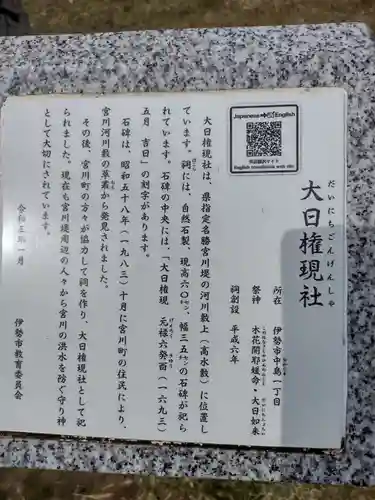 大日権現社
だいにちごんげんしゃ
所在　伊勢市中島一丁目
祭神　木花開耶媛命・大日如来
祠創設　平成六年
Japanese English
英語翻訳サイト
English translation web site
大日権現社は、県指定名勝宮川堤の河川敷上（高水敷）に位置し
ています。祠には、自然石製、現高六〇㌢、幅三五㌢の石碑が祀ら
れています。石碑の中央には、「大日権現　元禄六癸酉（一六九三）
五月　吉日」の刻字があります。
石碑は、昭和五十八年（一九八三）十月に宮川町の住民により、
宮川河川敷の草叢から発見されました。
その後、宮川町の方々が協力して祠を作り、大日権現社として祀
られました。現在も宮川堤周辺の人々から宮川の洪水を防ぐ守り神
として大切にされています。
令和三年一月　伊勢市教育委員会